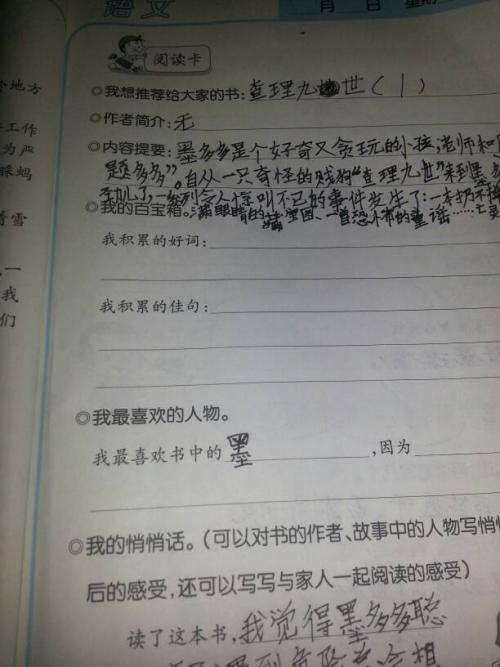 语文
月 日 星期
阅读卡
个地方
◎我想推荐给大家的书:查理九世(1)
◎作者简介:无
工作
◎内容提要:墨多多是个好奇又贪玩的小孩,老师和同
为严
题多多”。自从一只奇怪的贱狗“查理九世”来到墨多
睬蚂
令人惊叫不已的事件发生了:一本扔不掉
◎我的百宝箱。
着雪
我积累的好词:
一
我
我积累的佳句:
们
◎我最喜欢的人物。
我最喜欢书中的墨,因为
◎我的悄悄话。(可以对书的作者、故事中的人物写悄悄
后的感受,还可以写写与家人一起阅读的感受)
读了这本书,我觉得墨多多聪